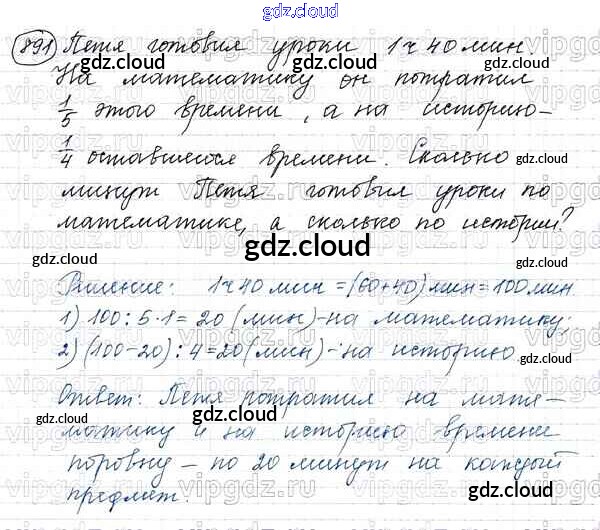 gdz.cloud
891 Петя готовил уроки 1 ч 40 мин.
На математику он потратил
1/5 этого времени, а на историю –
1/4 оставшегося времени. Сколько
минут Петя готовил уроки по
математике, а сколько по истории?
gdz.cloud
Решение: 1ч 40 мин = (60+40) мин = 100 мин
1) 100 : 5 · 1 = 20 (мин) – на математику;
2) (100-20) : 4 = 20 (мин) – на историю.
Ответ: Петя потратил на мате-
матику и на историю времени
поровну – по 20 минут на каждый
предмет.